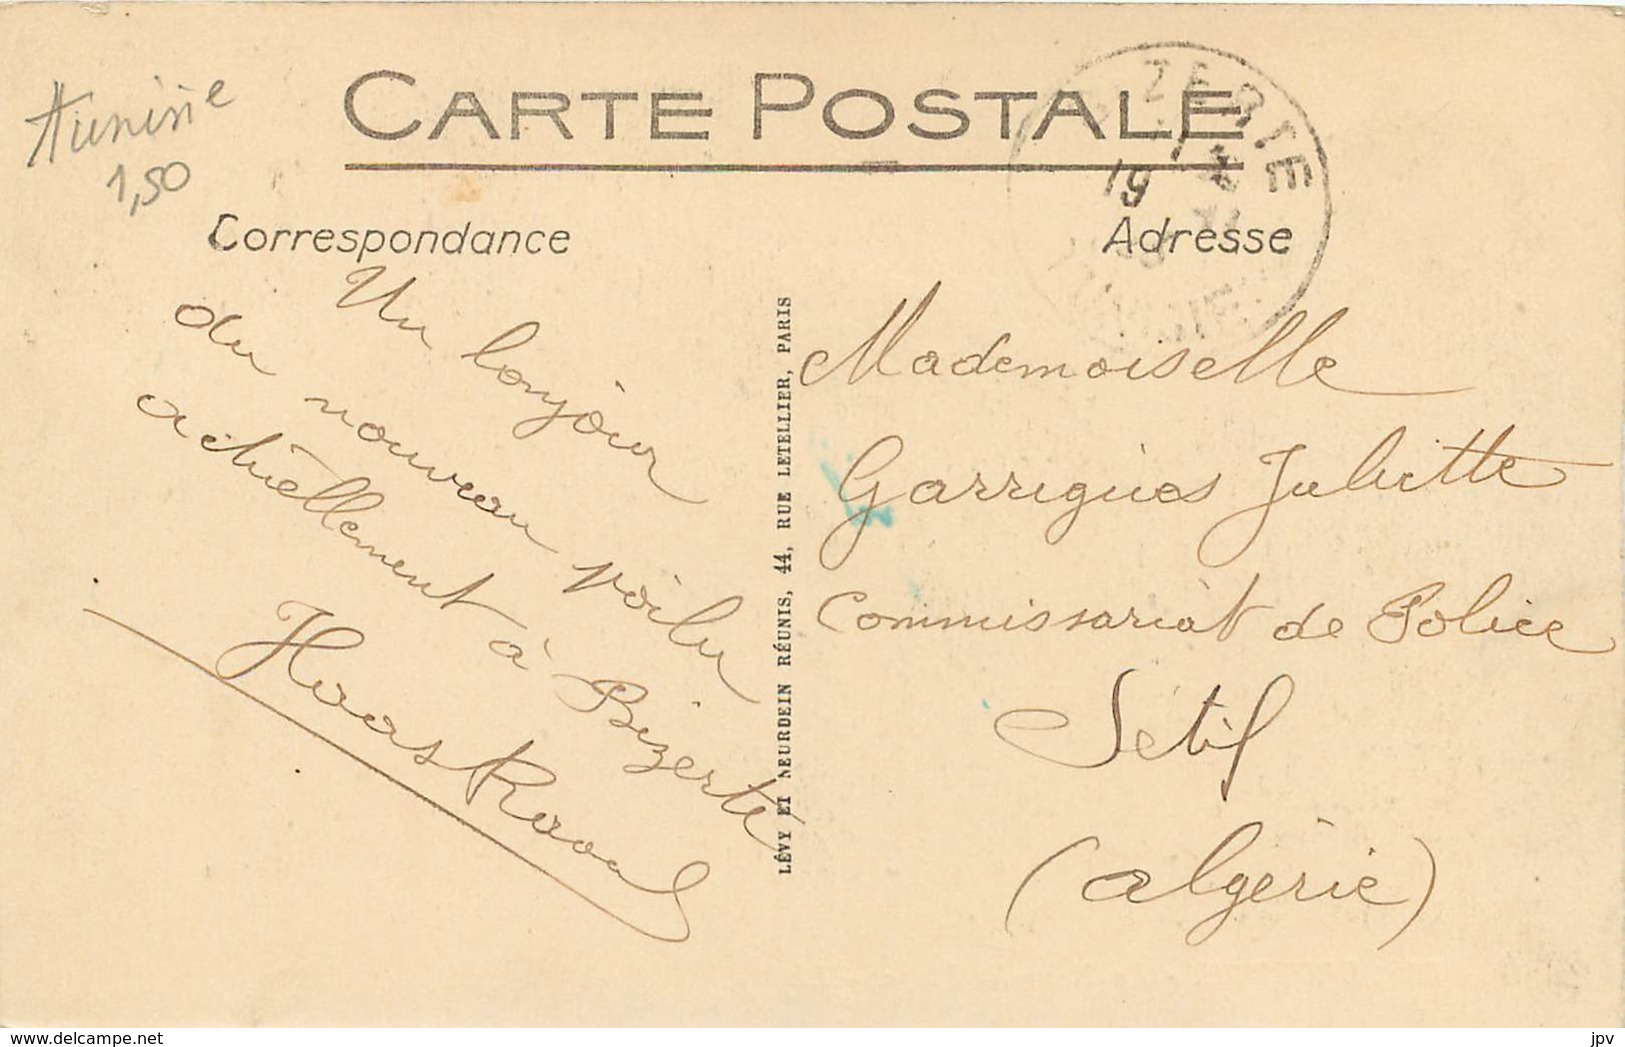 Tunisie
1,50
CARTE POSTALE
Correspondance
Adresse
ZERTE
19
Un bonjour
du nouveau poilu
actuellement à Bizerte
Haas Raoul
LÉVY ET NEURDEIN RÉUNIS, 44, RUE LETELLIER, PARIS
Mademoiselle
Garrigues Juliette
Commissariat de Police
Sétif
(Algérie)
www.delcampe.net
jpv